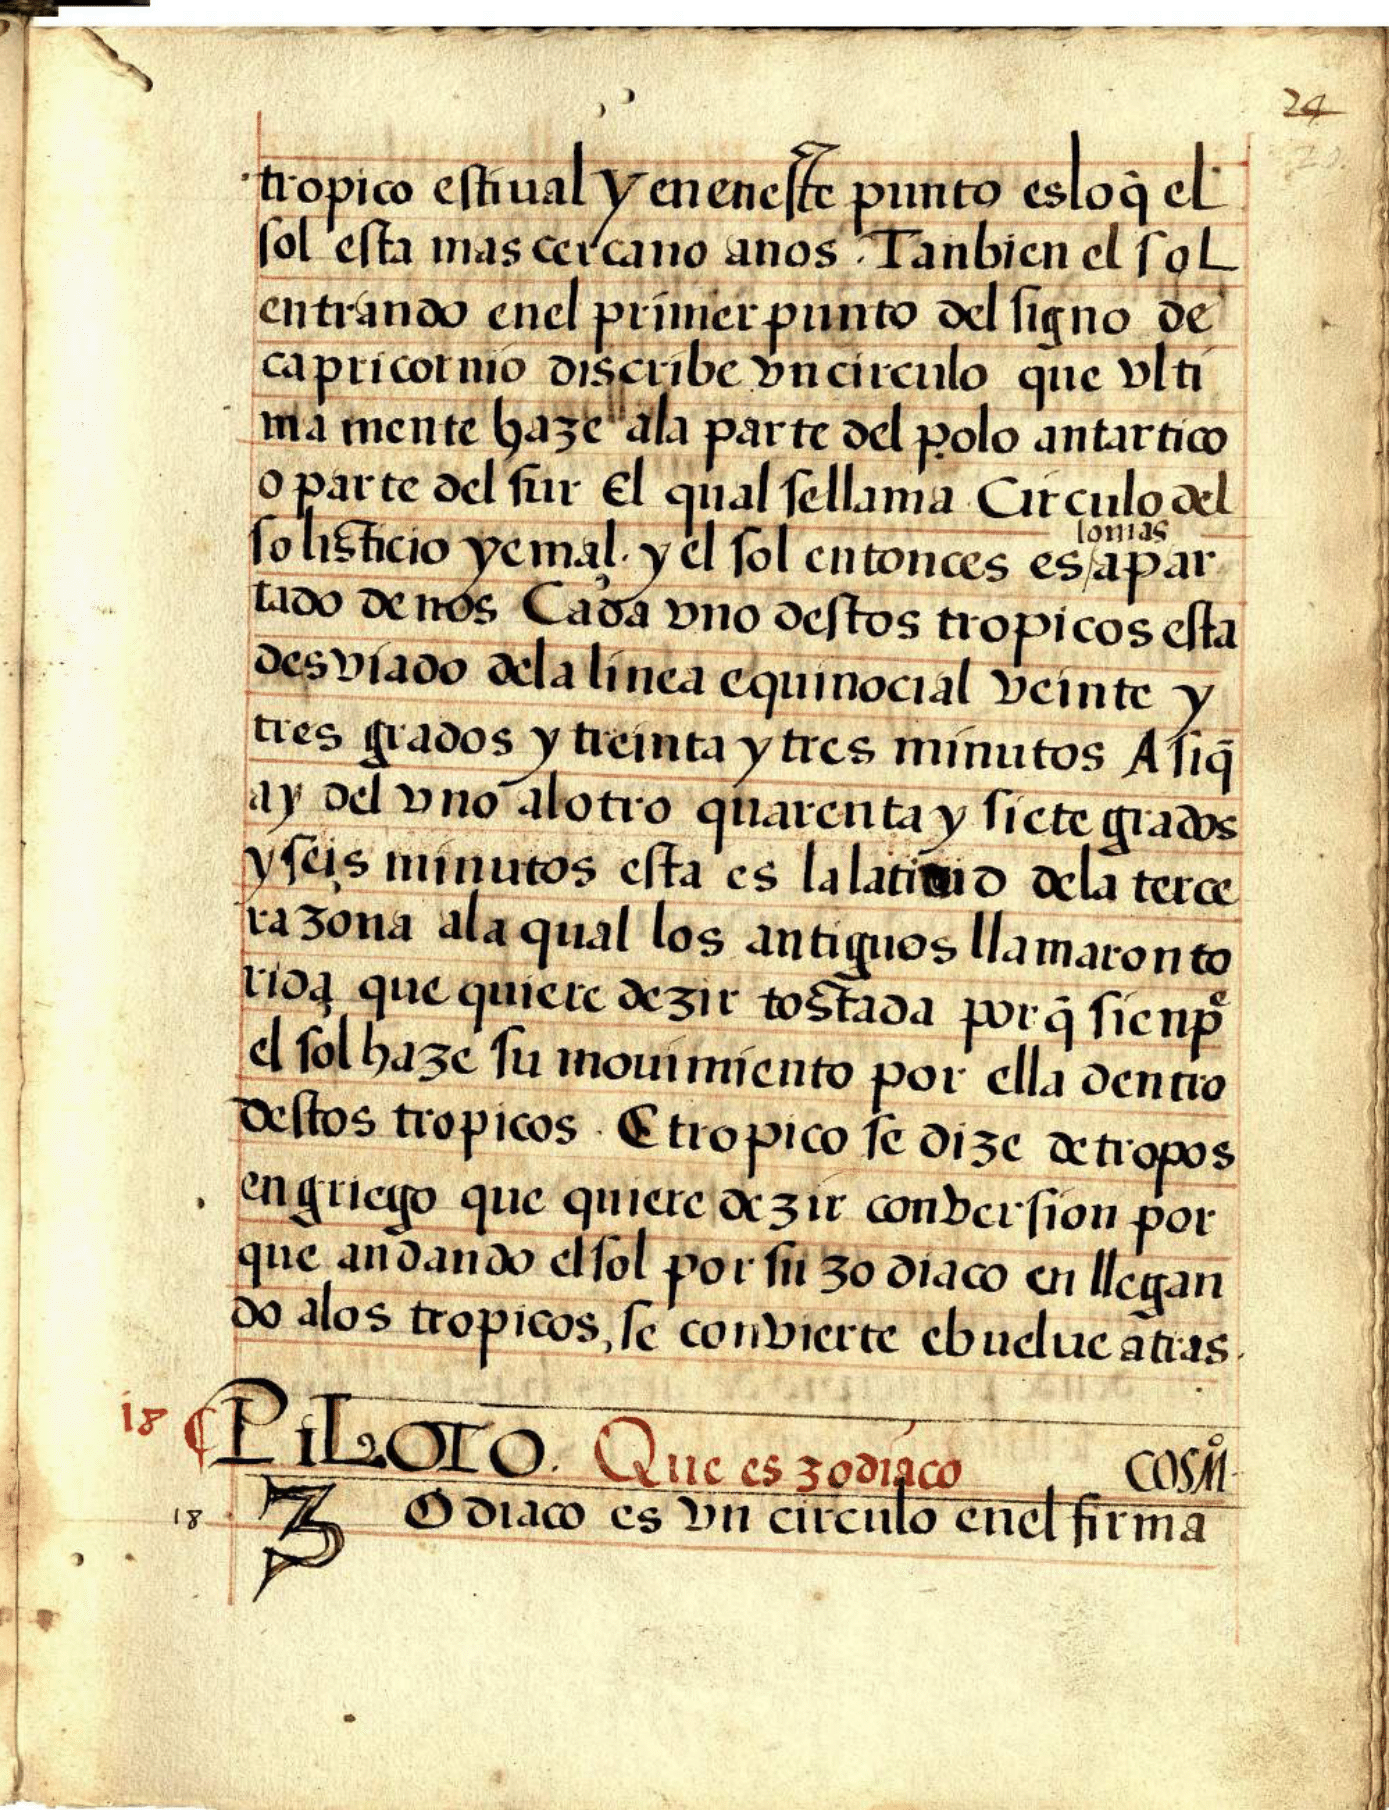 24
tropico estiual y en eneste punto es lo q̃ el
sol esta mas cercano anos. Tanbien el sol
entrando enel primer punto del signo de
capricornio discribe vn circulo que vlti
ma mente haze ala parte del polo antartico
o parte del sur El qual sellama Circulo del
lo mas
solisticio yemal. y el sol entonces es/apar
tado de nos Cada vno destos tropicos esta
desviado dela linea equinocial veinte y
tres grados y treinta y tres minutos Asi q̃
ay del vno alotro quarenta y siete grados
y seis minutos esta es la latitud dela terce
ra zona ala qual los antiguos llamaron to
rida que quiere dezir tostada por q̃ sienpᵉ
el sol haze su mouimiento por ella dentro
destos tropicos. E tropico se dize de tropos
en griego que quiere dezir conversion por
que andando el sol por su zodiaco en llegan
do alos tropicos, se convierte ebuelue atras.
18 ¶ PiLOTO. Que es zodiaco COSMº
18 ZOdiaco es vn circulo enel firma